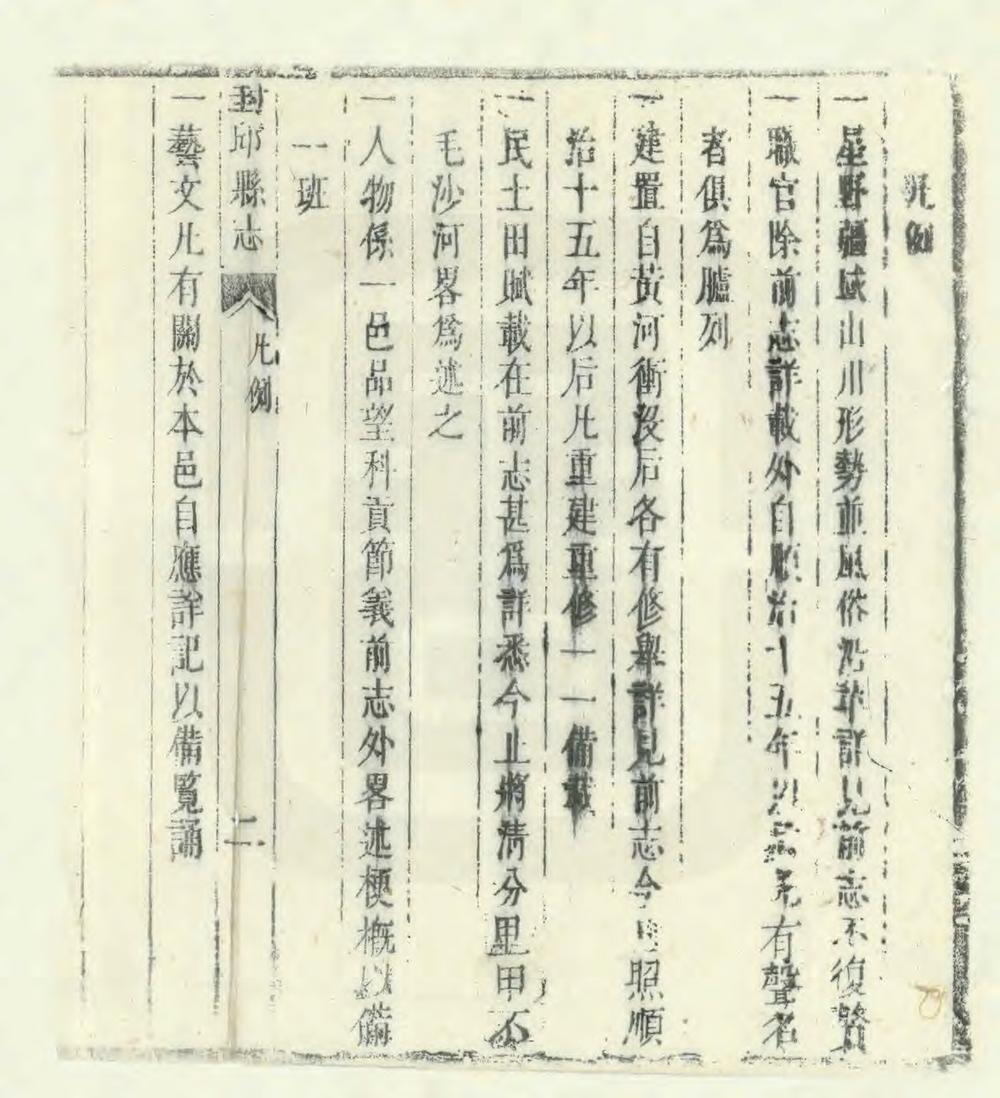 凡例
一星野疆域山川形勢並風俗沿革詳見前志不復贅
一職官除前志詳載外自順治十五年以後凡有聲名
者俱爲臚列
一建置自黃河衝没后各有修舉詳見前志今照順
治十五年以后凡重建重修一一備載
一民土田賦載在前志甚爲詳悉今止將清分里甲不
毛沙河畧爲述之
一人物係一邑品望科貢節義前志外畧述梗概以備
一班
封邱縣志 凡例 二
一藝文凡有關於本邑自應詳記以備覧誦